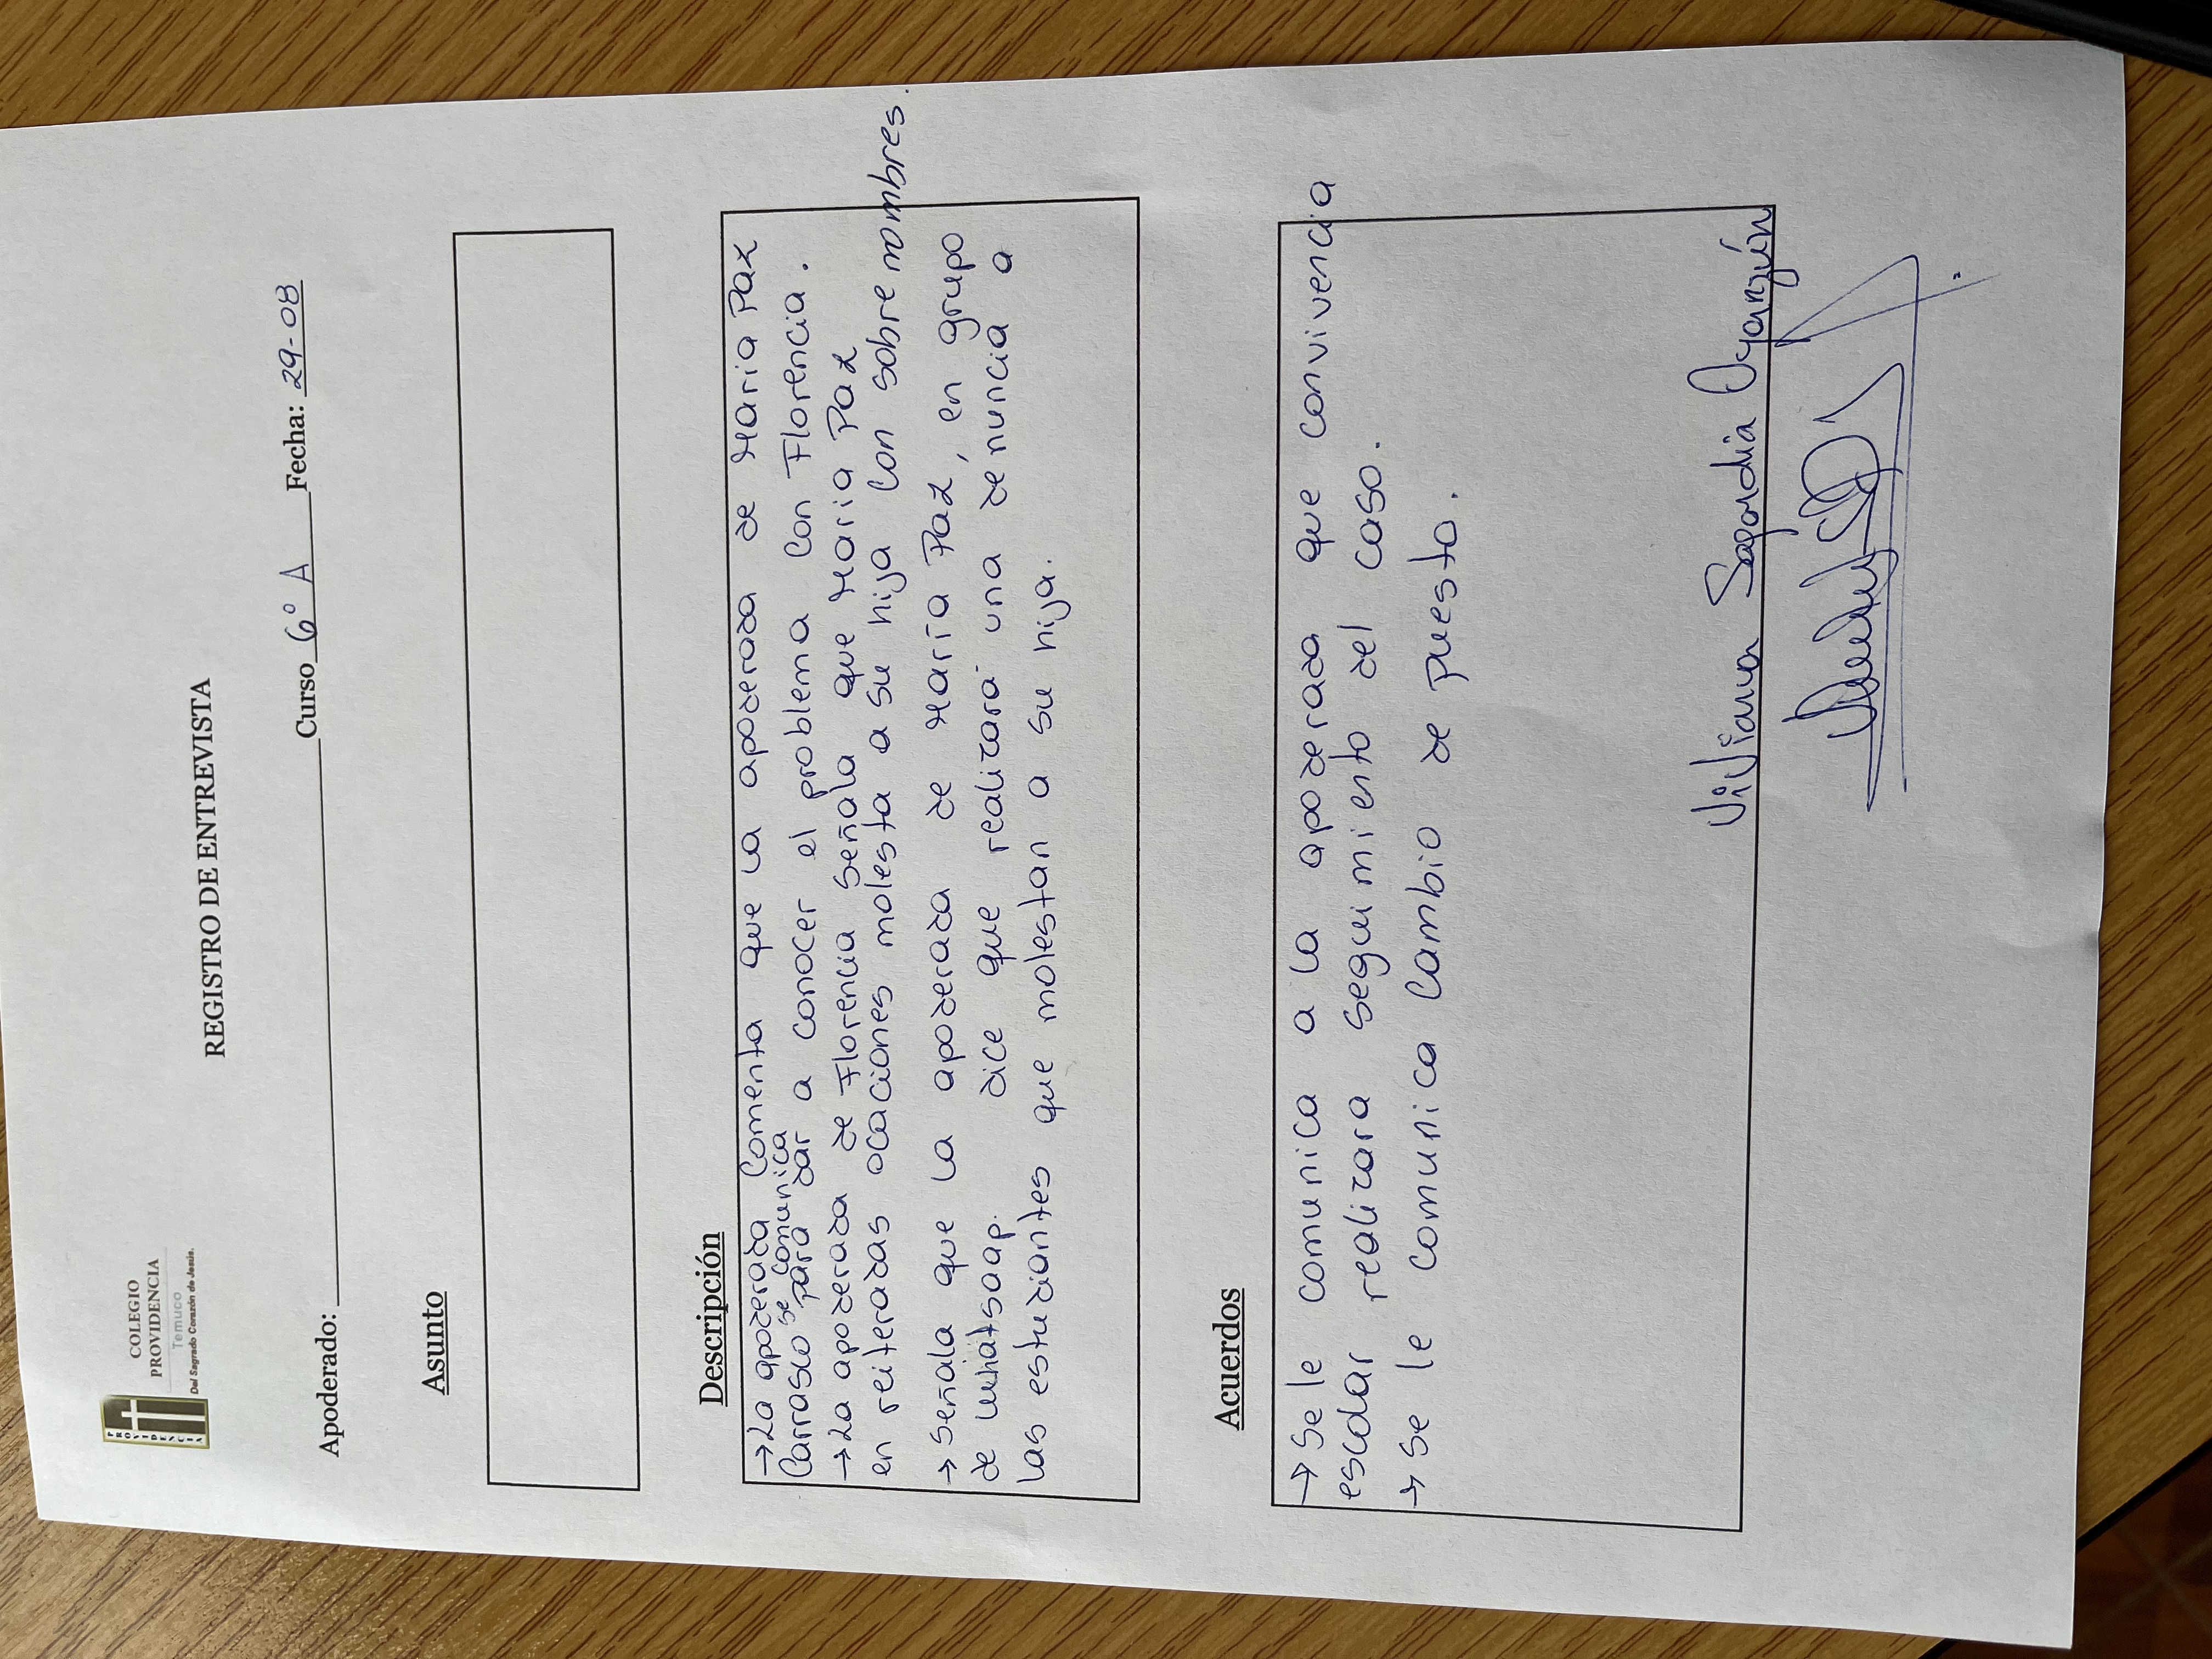 COLEGIO
PROVIDENCIA
Temuco
Del Sagrado Corazón de Jesús.
PROVIDENCIA
REGISTRO DE ENTREVISTA
Apoderado: Curso 6° A Fecha: 29-08
Asunto
Descripción
→ La apoderada comenta que la apoderada de María Paz
Carrasco se comunica para dar a conocer el problema con Florencia.
→ La apoderada de Florencia señala que María Paz
en reiteradas ocaciones molesta a su hija con sobre nombres.
→ señala que la apoderada de María Paz, en grupo
de whatsaap. dice que realizará una denuncia a
las estudiantes que molestan a su hija.
Acuerdos
→ Se le comunica a la apoderada que convivencia
escolar realizara seguimiento del caso.
→ se le comunica cambio de puesto.
Viviana Sagardia Oyarzún